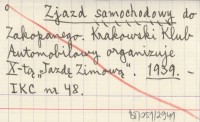 Zjazd samochodowy do
Zakopanego. Krakowski Klub
Automobilowy organizuje
X-tą „Jazdę Zimową”. 1939. –
IKC nr 48.